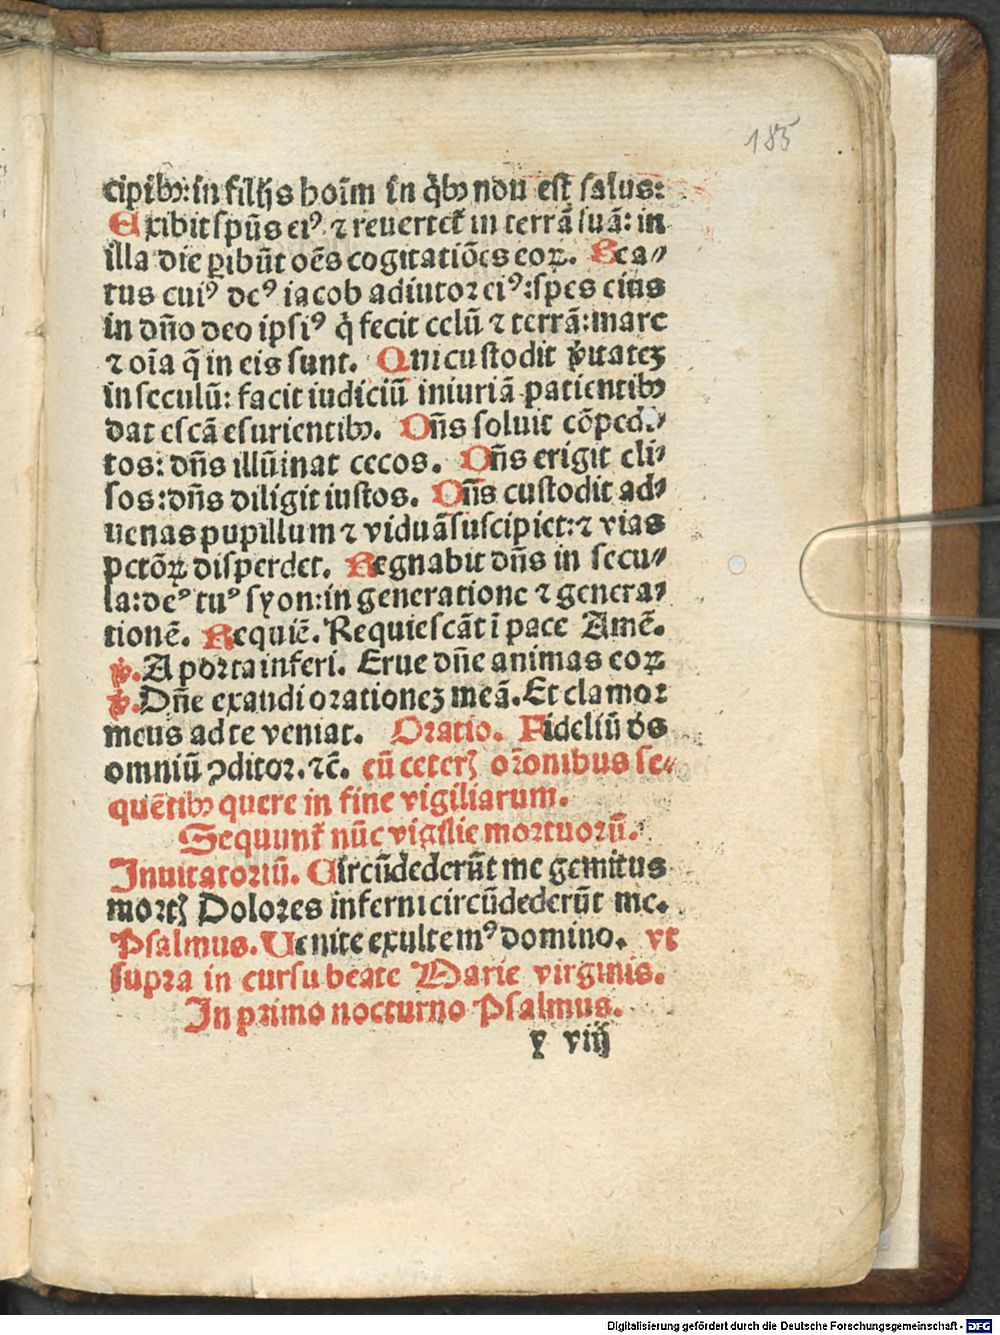 185
cipibꝫ: in filijs hoīm in q̄bꝫ non est salus:
Exibit spūs ei⁹ ⁊ reuertet̄ in terrā suā: in
illa die ꝑibūt oēs cogitatiōes eoꝝ. Bea⸗
tus cui⁹ de⁹ iacob adiutor ei⁹: spes eius
in dn̄o deo ipsi⁹ q̇ fecit celū ⁊ terrā: mare
⁊ oīa q̄ in eis sunt. Qui custodit v̄itateꝫ
in seculū: facit iudiciū iniuriā patientibꝫ
dat escā esurientibꝫ. Dn̄s soluit cōped⸗
tos: dn̄s illūinat cecos. Dn̄s erigit eli⸗
sos: dn̄s diligit iustos. Dn̄s custodit ad⸗
uenas pupillum ⁊ viduā suscipiet: ⁊ vias
pctōꝝ disperdet. Regnabit dn̄s in secu⸗
la: de⁹ tu⁹ syon: in generatione ⁊ genera⸗
tionē. Requiē. Requiescāt ī pace Amē.
℣. A porta inferi. Erue dn̄e animas eoꝝ
℣. Dn̄e exaudi orationeꝫ meā. Et clamor
meus ad te veniat. Oratio. Fideliū ds̄
omniū ꝯditor. ⁊c̄. cū ceteris or̄onibus se⸗
quētibꝫ quere in fine vigiliarum.
Sequunt̄ nūc vigilie mortuorū.
Inuitatoriū. Circūdederūt me gemitus
mortis Dolores inferni circūdederūt me.
Psalmus. Uenite exultem⁹ domino. vt
supra in cursu beate Marie virginis.
In primo nocturno Psalmus.
y viij
Digitalisierung gefördert durch die Deutsche Forschungsgemeinschaft - DFG